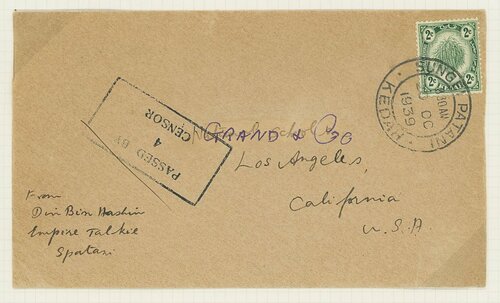 2c 2c
2c 2c
SUNGEI PATANI
KEDAH
30AM
OC
1939
PASSED BY
CENSOR
4
GRAND & Co
Los Angeles,
California
U.S.A.
From
Din Bin Hashin
Empire Talkie
Spatani